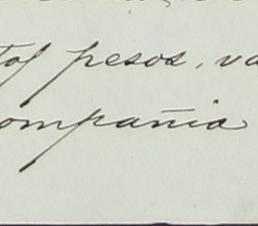 tos pesos, va
ompañia